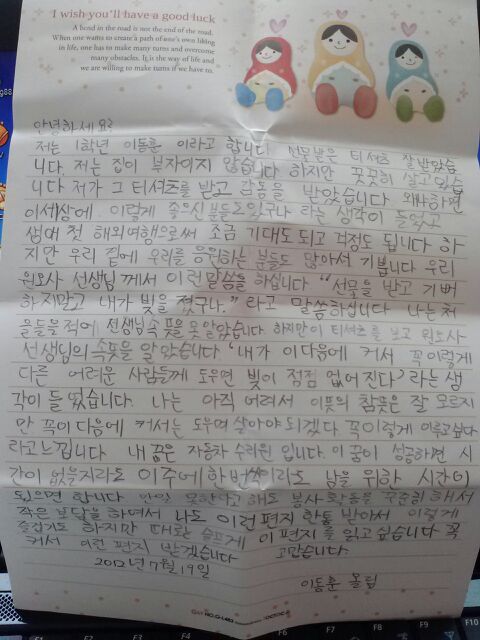 I wish you'll have a good luck
A bend in the road is not the end of the road.
When one wants to create a path of one's own liking
in life, one has to make many turns and overcome
many obstacles. It is the way of life and
we are willing to make turns if we have to.
안녕하세요?
저는 1학년 이동훈 이라고 합니다 선물받은 티셔츠 잘받았습
니다. 저는 집이 부자이지 않습니다 하지만 꿋꿋히 살고있습
니다 저가 그 티셔츠를 받고 감동을 받았습니다 왜냐하면
이세상에 이렇게 좋으신 분들도있구나 라는 생각이 들었고
생애 첫 해외여행으로써 조금 기대도 되고 걱정도 됩니다 하
지만 우리 곁에 우리를 응원하는 분들도 많아서 기쁩니다 우리
원호사 선생님께서 이런말씀을 하십니다 "선물을 받고 기뻐
하지말고 내가 빚을 졌구나." 라고 말씀하십니다 나는처
음들을적에 선생님속 뜻을 몰랐습니다 하지만이 티셔츠를 보고 원호사
선생님의 속뜻을 알았습니다 '내가 이다음에 커서 꼭이렇게
다른 어려운 사람들께 도우면 빚이 점점 없어진다' 라는 생
각이 들었습니다. 나는 아직 어려서 이뜻의 참뜻은 잘 모르지
만 꼭이다음에 커서는 도우며 살아야 되겠다 꼭이렇게 이루고싶다
라고느낍니다 내 꿈은 자동차 수리원 입니다 이 꿈이 성공하면 시
간이 없을지라도 이주에한번씩이라도 남을 위한 시간이
됬으면 합니다 만일 못한다고 해도 봉사 활동을 꾸준히 해서
작은 보답을 하면서 나도 이런 편지 한통 받아서 이렇게
즐겁기도 하지만 때로는 슬프게 이 편지를 읽고 싶습니다 꼭
커서 이런 편지 받겠습니다 고맙습니다
2012년 7월 19일
이동훈 올림
F6 F7 F8 F9 F10